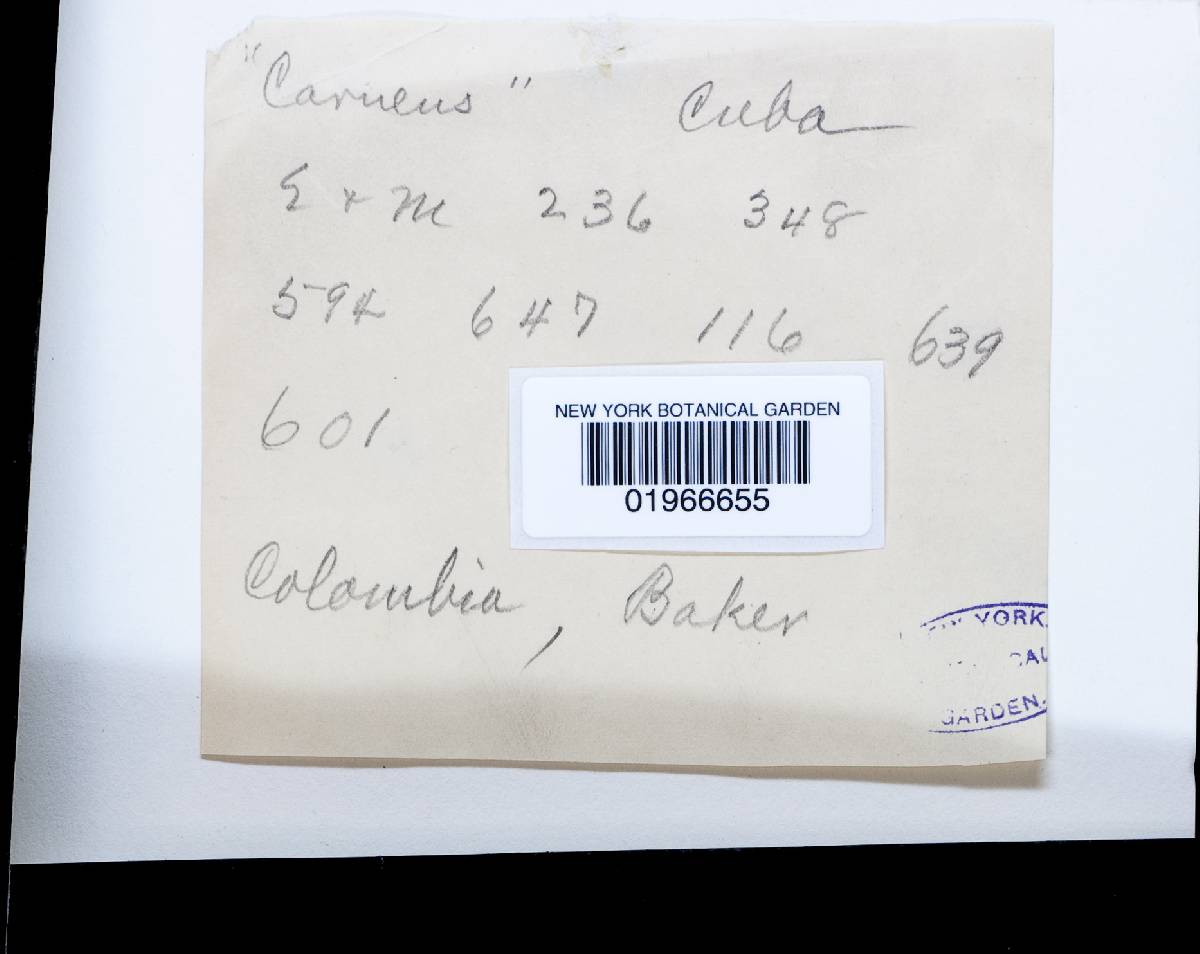 "Carneus" Cuba
E + M 236 348
594 647 116 639
601
NEW YORK BOTANICAL GARDEN
01966655
Colombia, Baker
YORK
GARDEN.